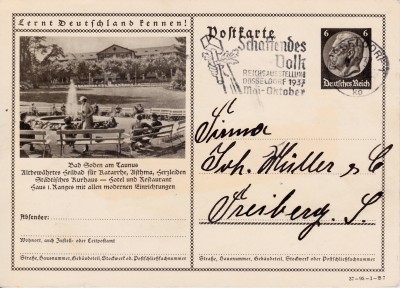 Lernt Deutschland kennen!
Bad Soden am Taunus
Altbewährtes Heilbad für Katarrhe, Asthma, Herzleiden
Städtisches Kurhaus — Hotel und Restaurant
Haus I. Ranges mit allen modernen Einrichtungen
Absender:
Wohnort, auch Zustell- oder Leitpostamt
Straße, Hausnummer, Gebäudeteil, Stockwerk od. Postschließfachnummer
Postkarte
Schaffendes
Volk
REICHSAUSSTELLUNG
DÜSSELDORF 1937
Mai-Oktober
6 6
Deutsches Reich
Firma
Joh. Müller & C
Freiberg. S.
Straße, Hausnummer, Gebäudeteil, Stockwerk od. Postschließfachnummer